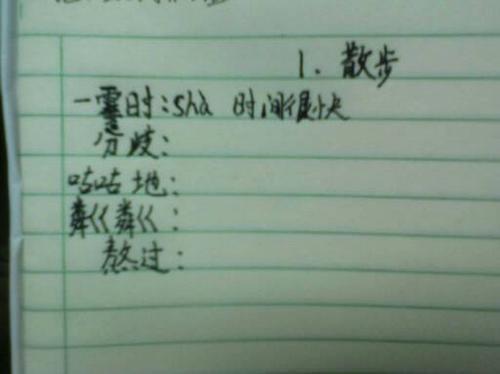 1. 散步
一霎时:shà 时间很快
分歧:
咕咕地:
粼粼:
熬过: